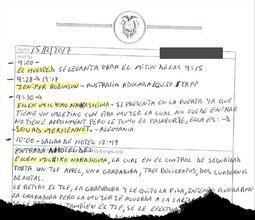 15/12/2017
9:00—
EL HUESPED SE LEVANTA PARA EL MITIN DE LAS 9:15
9:28 → 13:17
JENIFER ROBINSON - AUSTRALIA ABOGADA EQUIPO STAFF
9:30—
ELLEN MICHIKO NAKASHIMA - SE PRESENTA EN LA PUERTA YA QUE
TIENE UN MEETING CON OTRA MUJER LA CUAL NO PUEDE ENTRAR
NO TIENE APPOINTMENT PERO LE TOMO EL PASAPORTE, ELLA ES: →
SOUAD MERKHENNET - ALEMANIA
10:00 - SALIDA DE HOTEL 12:49
ENTRADA HOTEL DE
ELLEN MICHIKO NAKASHIMA, LA CUAL EN EL CONTROL DE SEGURIDAD
PORTA UN TLF APPEL, UNA GRABADORA, TRES BOLIGRAFOS, DOS CUADERNOS
DE NOTAS.
LE RETIRO EL TLF, LA GRABADORA Y LE QUITO LA PILA,
LA GRABADORA PERO LA MUJER SE ACUERDA A LA
TAMBIÉN EL TLF, SE LE